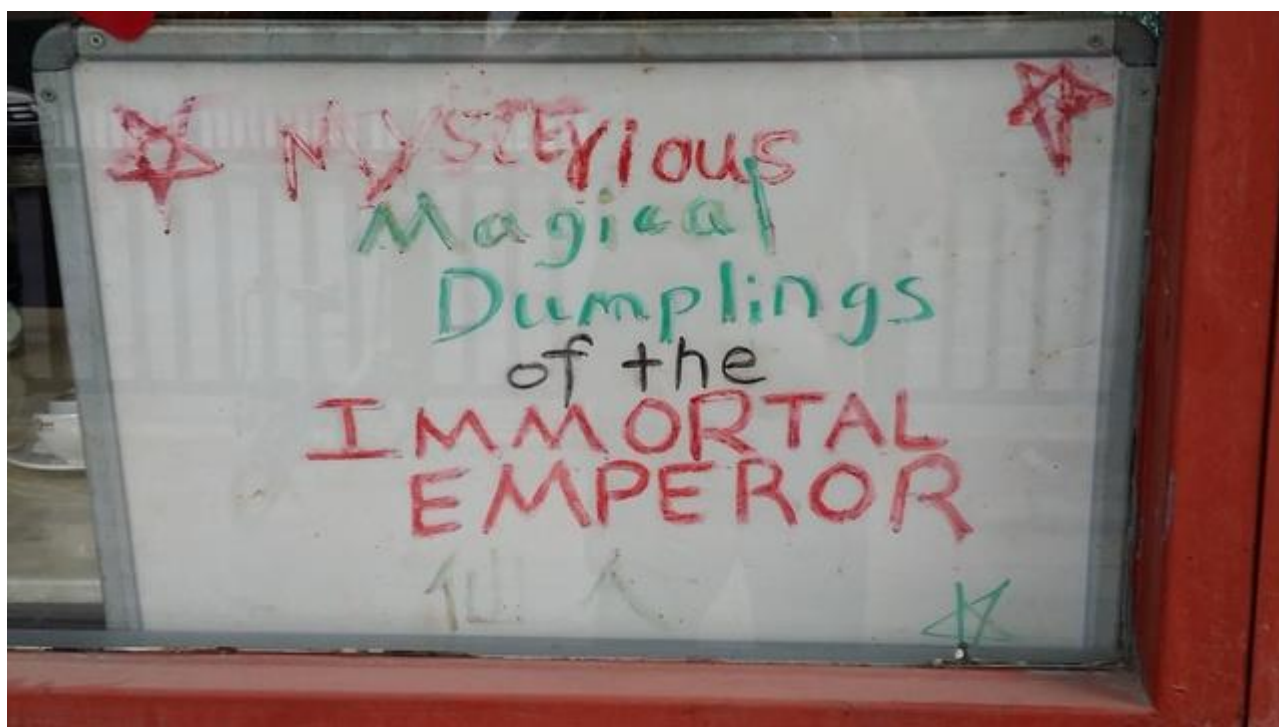 MYSTErious
Magical
Dumplings
of the
IMMORTAL
EMPEROR
仙人